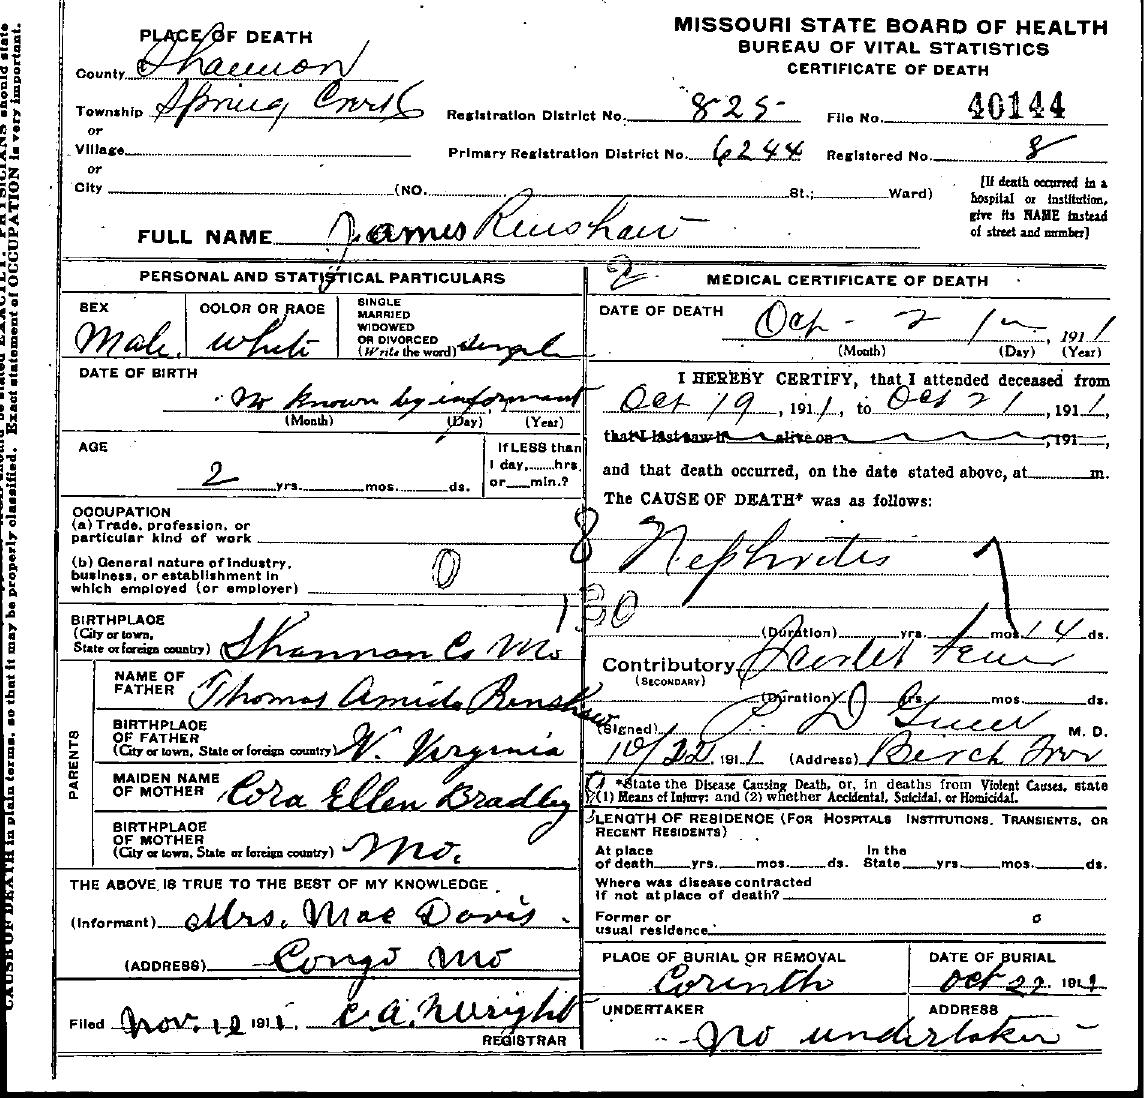 MISSOURI STATE BOARD OF HEALTH
BUREAU OF VITAL STATISTICS
CERTIFICATE OF DEATH
PLACE OF DEATH
County Shannon
Township Spring Creek
or
Village
or
City (NO. St.; Ward)
Registration District No. 825
File No. 40144
Primary Registration District No. 6244
Registered No. 8
[If death occurred in a
hospital or institution,
give its NAME instead
of street and number]
FULL NAME James Renshaw
PERSONAL AND STATISTICAL PARTICULARS
SEX
Male
COLOR OR RACE
white
SINGLE
MARRIED
WIDOWED
OR DIVORCED
(Write the word) single
DATE OF BIRTH
No known by informant
(Month) (Day) (Year)
AGE
2 yrs. mos. ds.
If LESS than
1 day, hrs.
or min.?
OCCUPATION
(a) Trade, profession, or
particular kind of work
(b) General nature of industry,
business, or establishment in
which employed (or employer)
0
BIRTHPLACE
(City or town,
State or foreign country) Shannon Co Mo
PARENTS
NAME OF
FATHER Thomas Amida Renshaw
BIRTHPLACE
OF FATHER
(City or town, State or foreign country) W. Virginia
MAIDEN NAME
OF MOTHER Cora Ellen Bradley
BIRTHPLACE
OF MOTHER
(City or town, State or foreign country) Mo.
THE ABOVE IS TRUE TO THE BEST OF MY KNOWLEDGE
(Informant) Mrs. Mae Davis
(ADDRESS) Congo Mo
Filed Nov. 12 1911. C.A. Wright
REGISTRAR
2
MEDICAL CERTIFICATE OF DEATH
DATE OF DEATH
Oct - 21 1911
(Month) (Day) (Year)
I HEREBY CERTIFY, that I attended deceased from
Oct 19, 1911, to Oct 21, 1911,
that I last saw h alive on , 191 ,
and that death occurred, on the date stated above, at m.
The CAUSE OF DEATH* was as follows:
8
Nephritis
130
(Duration) yrs. mos. 14 ds.
Contributory Scarlet Fever
(SECONDARY)
(Duration) yrs. mos. ds.
(Signed) D M. D.
10/22 1911 (Address) Birch
*State the Disease Causing Death, or, in deaths from Violent Causes, state
(1) Means of Injury; and (2) whether Accidental, Suicidal, or Homicidal.
LENGTH OF RESIDENCE (FOR HOSPITALS INSTITUTIONS, TRANSIENTS, OR
RECENT RESIDENTS)
At place
of death yrs. mos. ds.
In the
State yrs. mos. ds.
Where was disease contracted
if not at place of death?
Former or
usual residence
PLACE OF BURIAL OR REMOVAL
Corinth
DATE OF BURIAL
Oct 22 1911
UNDERTAKER
ADDRESS
No undertaker
CAUSE OF DEATH in plain terms, so that it may be properly classified. Exact statement of OCCUPATION is very important.